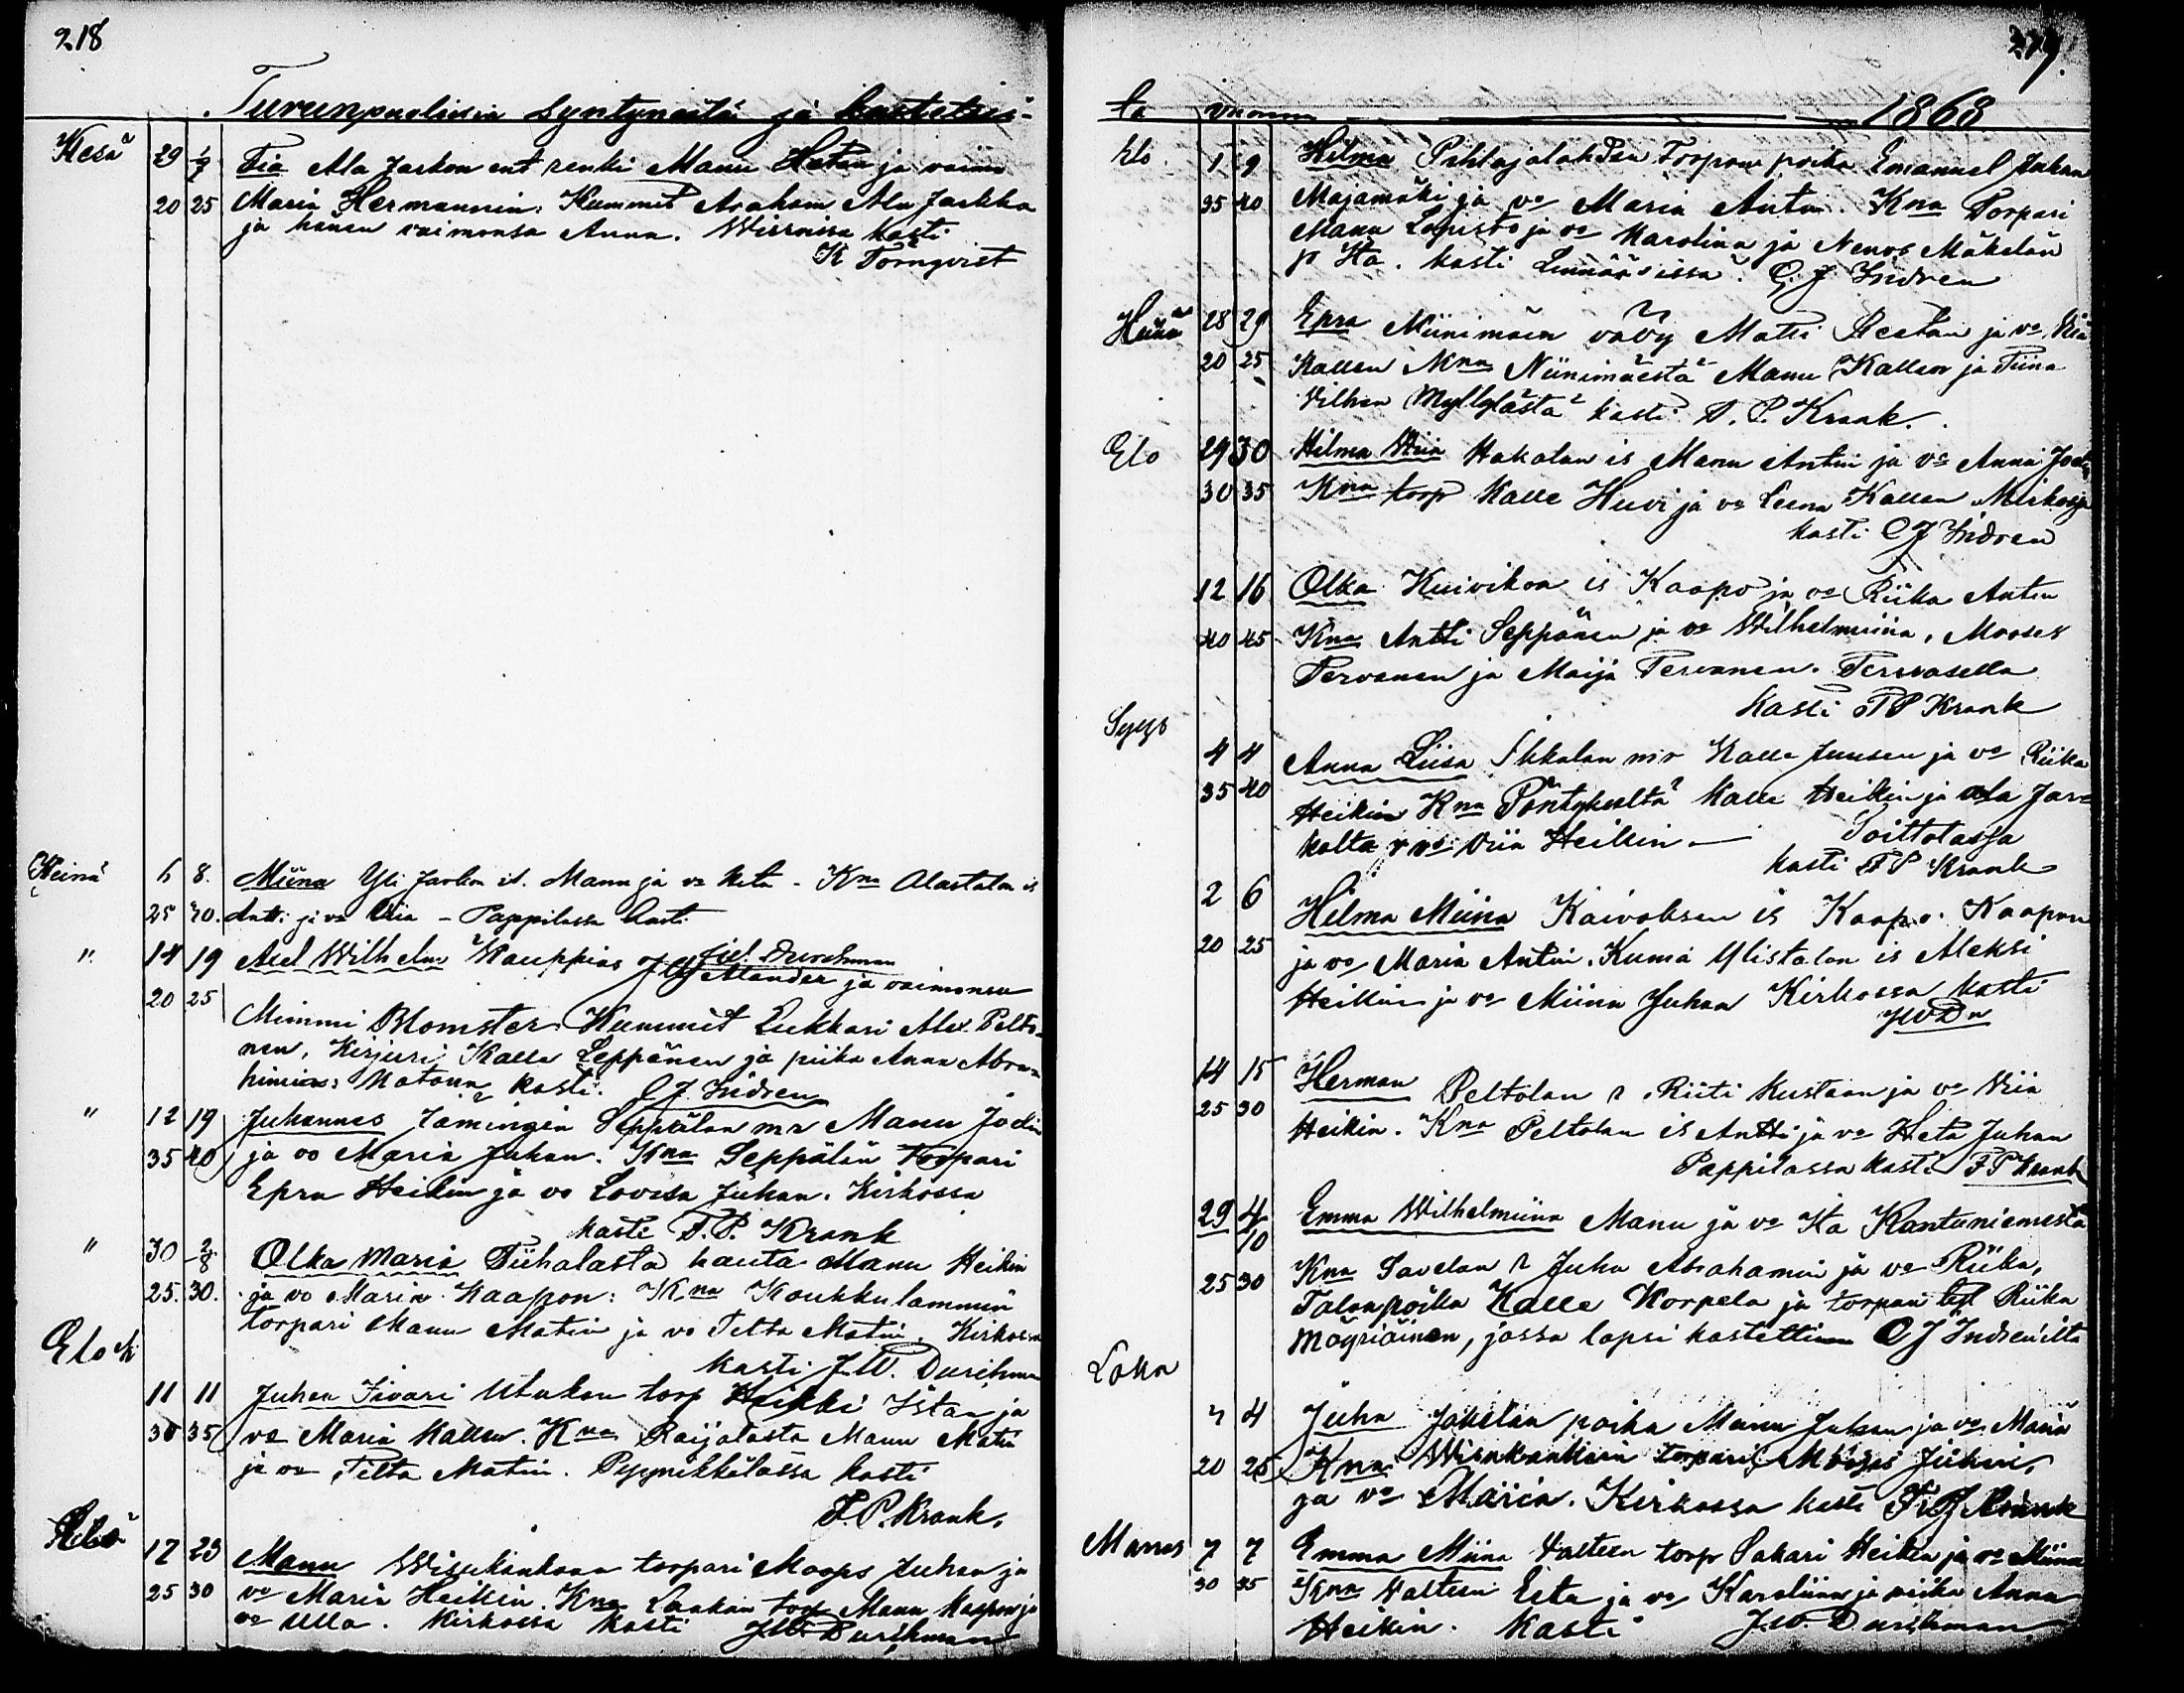 218
Turunpuolisia Syntyneitä ja kastetui-
Kesä 29 1/7 Fia Ala Jaskon ent renki Manu Hetan ja vaimo
20 25 Maria Hermannin. Kummit Abraham Ala Jaskka
ja hänen vaimonsa Anna. kasti
K Törnqvist
Heinä 6 8. Miina Yli Jaskon is. Manu ja va Heta - Kna Alastalon is
25 30. Antti ja va Viia - Pappilassa kasti
" 14 19 Axel Wilhelm Kauppias Alander ja vaimonsa
20 25
Mimmi Blomster. Kummit Lukkari Alex. Pelto-
nen, Kirjuri Kalle Leppänen ja piika Anna Abra-
himin: Kotona kasti. C J. Indren
" 12 19 Juhannes Jämingin Seppälan mr Manu Joelin
35 40 ja vo Maria Juhan. Kna Seppälän Torpari
Epra Heikin ja vo Lovisa Juhan. Kirkossa
kasti F. P. Krank
" 30 2/8 Olka Maria Tiihalasta hauta Manu Heikin
25. 30. ja vo Maria Kaapon: Kna Koukkulammin
torpari Manu Matin ja vo Telta Matin. Kirkossa
Elo k kasti J.W. Durchman
11 11 Juhan Iivari Utukan torp Heikki Istan ja
30 35 va Maria Kallen. Kna Raijalasta Manu Matin
ja va Telta Matin. kasti
F. P. Krank.
Elo 17 23 Manu torpari Mooses Juhan ja
25 30 va Maria Heikin. Kna Laakan torp Manu Kaapon ja
va Ulla. Kirkossa kasti J.W. Durchman
ta vuonna 1868
Elo 1 9 Hilma Pihlajalahden Torpan poika Emanuel Juhan
35 40 Majamäki ja va Maria Antin. Kna Torpari
Manu Lepistö ja va Karolina ja Nuor Mäkelän
ja Ita. kasti C. J. Indren
Heinä 28 29 Epra Niinimäen vävy Matti Heetan ja va Viia
20 25 Kallen Kna Niinimäestä Manu Kallen ja Tiina
Vilhen Myllylästä kasti F. P. Krank.
Elo 29 30 Hilma Viia Hakalan is Manu Antin ja va Anna Joelin
30 35 Kna torp Kalle Huvi ja va Leena Kallen Kirkossa
kasti C J Indren
12 16 Olka Kuivikon is Kaapo ja va Riika Antin
40 45 Kna Antti Seppänen ja va Wilhelmiina, Mooses
Tervanen ja Maija Tervanen. Tervasella
kasti F P Krank
Syys
4 4 Anna Liisa Ikkalan mr Kalle Juusen ja va Riika
35 40 Heikin Kna Kalle Heikin ja Ala Jas-
kolta r va Viia Heikin - Soittolassa
kasti F P Krank
2 6 Hilma Miina Kaivoksen is Kaapo Kaapon
20 25 ja va Maria Antin. Kuma Ylistalon is Aleksi
Heikin ja va Miina Juhan Kirkossa kasti
JWDn
14 15 Herman Peltolan r Riiti Kustaan ja va Viia
25 30 Heikin. Kna Peltolan is Antti ja va Heta Juhan
Pappilassa kasti F P Krank
29 4/10 Emma Wilhelmiina Manu ja va Ita Kantuniemestä
25 30 Kna Savelan r Juha Abrahamin ja va Riika,
Talonpoika Kalle Korpela ja torpan Riika
Mägriäinen, jossa lapsi kastettiin C J Indreniltä
Loka
4 4 Juha Jokelan poika Manu Juhan ja va Maria
20 25 Kna torpari Mooses Juhan,
ja va Maria. Kirkossa kasti F. P. Krank
Marras 7 7 Emma Miina Valteen torp Sakari Heikin ja va Miina
30 35 Kna Valteen Eeta ja va Karoliina ja piika Anna
Heikin. Kasti J.W. Durchman